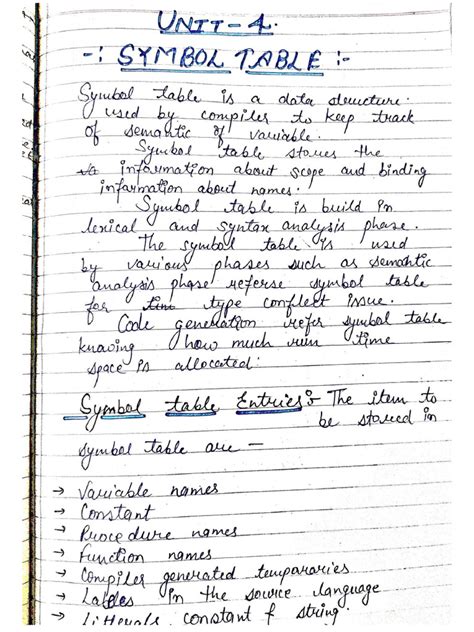 UNIT-4.
-: SYMBOL TABLE :-
Symbol table is a data structure.
used by compiler to keep track
of semantic of variable.
Symbol table stores the
information about scope and binding
information about names.
Symbol table is build in
lexical and syntax analysis phase.
The symbol table is used
by various phases such as semantic
analysis phase referse symbol table
for type conflect issue.
Code generation refer symbol table
knowing how much run time
space is allocated.
Symbol table Entries :- The item to
be stored in
symbol table are —
→ Variable names
→ Constant
→ Procedure names
→ Function names
→ Compiler generated temporaries
→ Lables in the source language
→ Litterals, constant & string